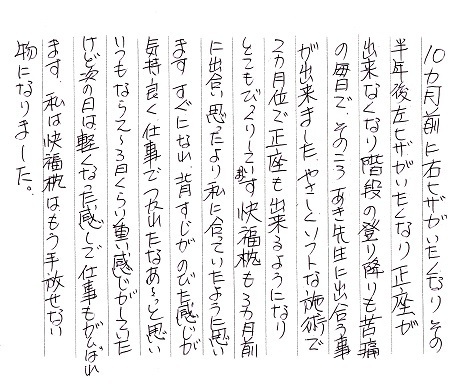 10カ月前に右ヒザがいたくなり その
半年後左ヒザがいたくなり 正座が
出来なくなり階段の登り降りも苦痛
の毎日で、そのころ あき先生に出合う事
が出来ました、やさしくソフトな施術で
2カ月位で正座も出来るようになり
とてもびっくりしています 快福枕も3カ月前
に出合い 思ったより私に合ていたように思い
ます すぐになれ 背すじがのびた感じが
気持ち良く 仕事でつかれたなあ～っと思い
いつもなら2～3日くらい重い感じがしていた
けど次の日は軽くなった感じで 仕事もがんばれ
ます、私は快福枕は、もう手放せない
物になりました。